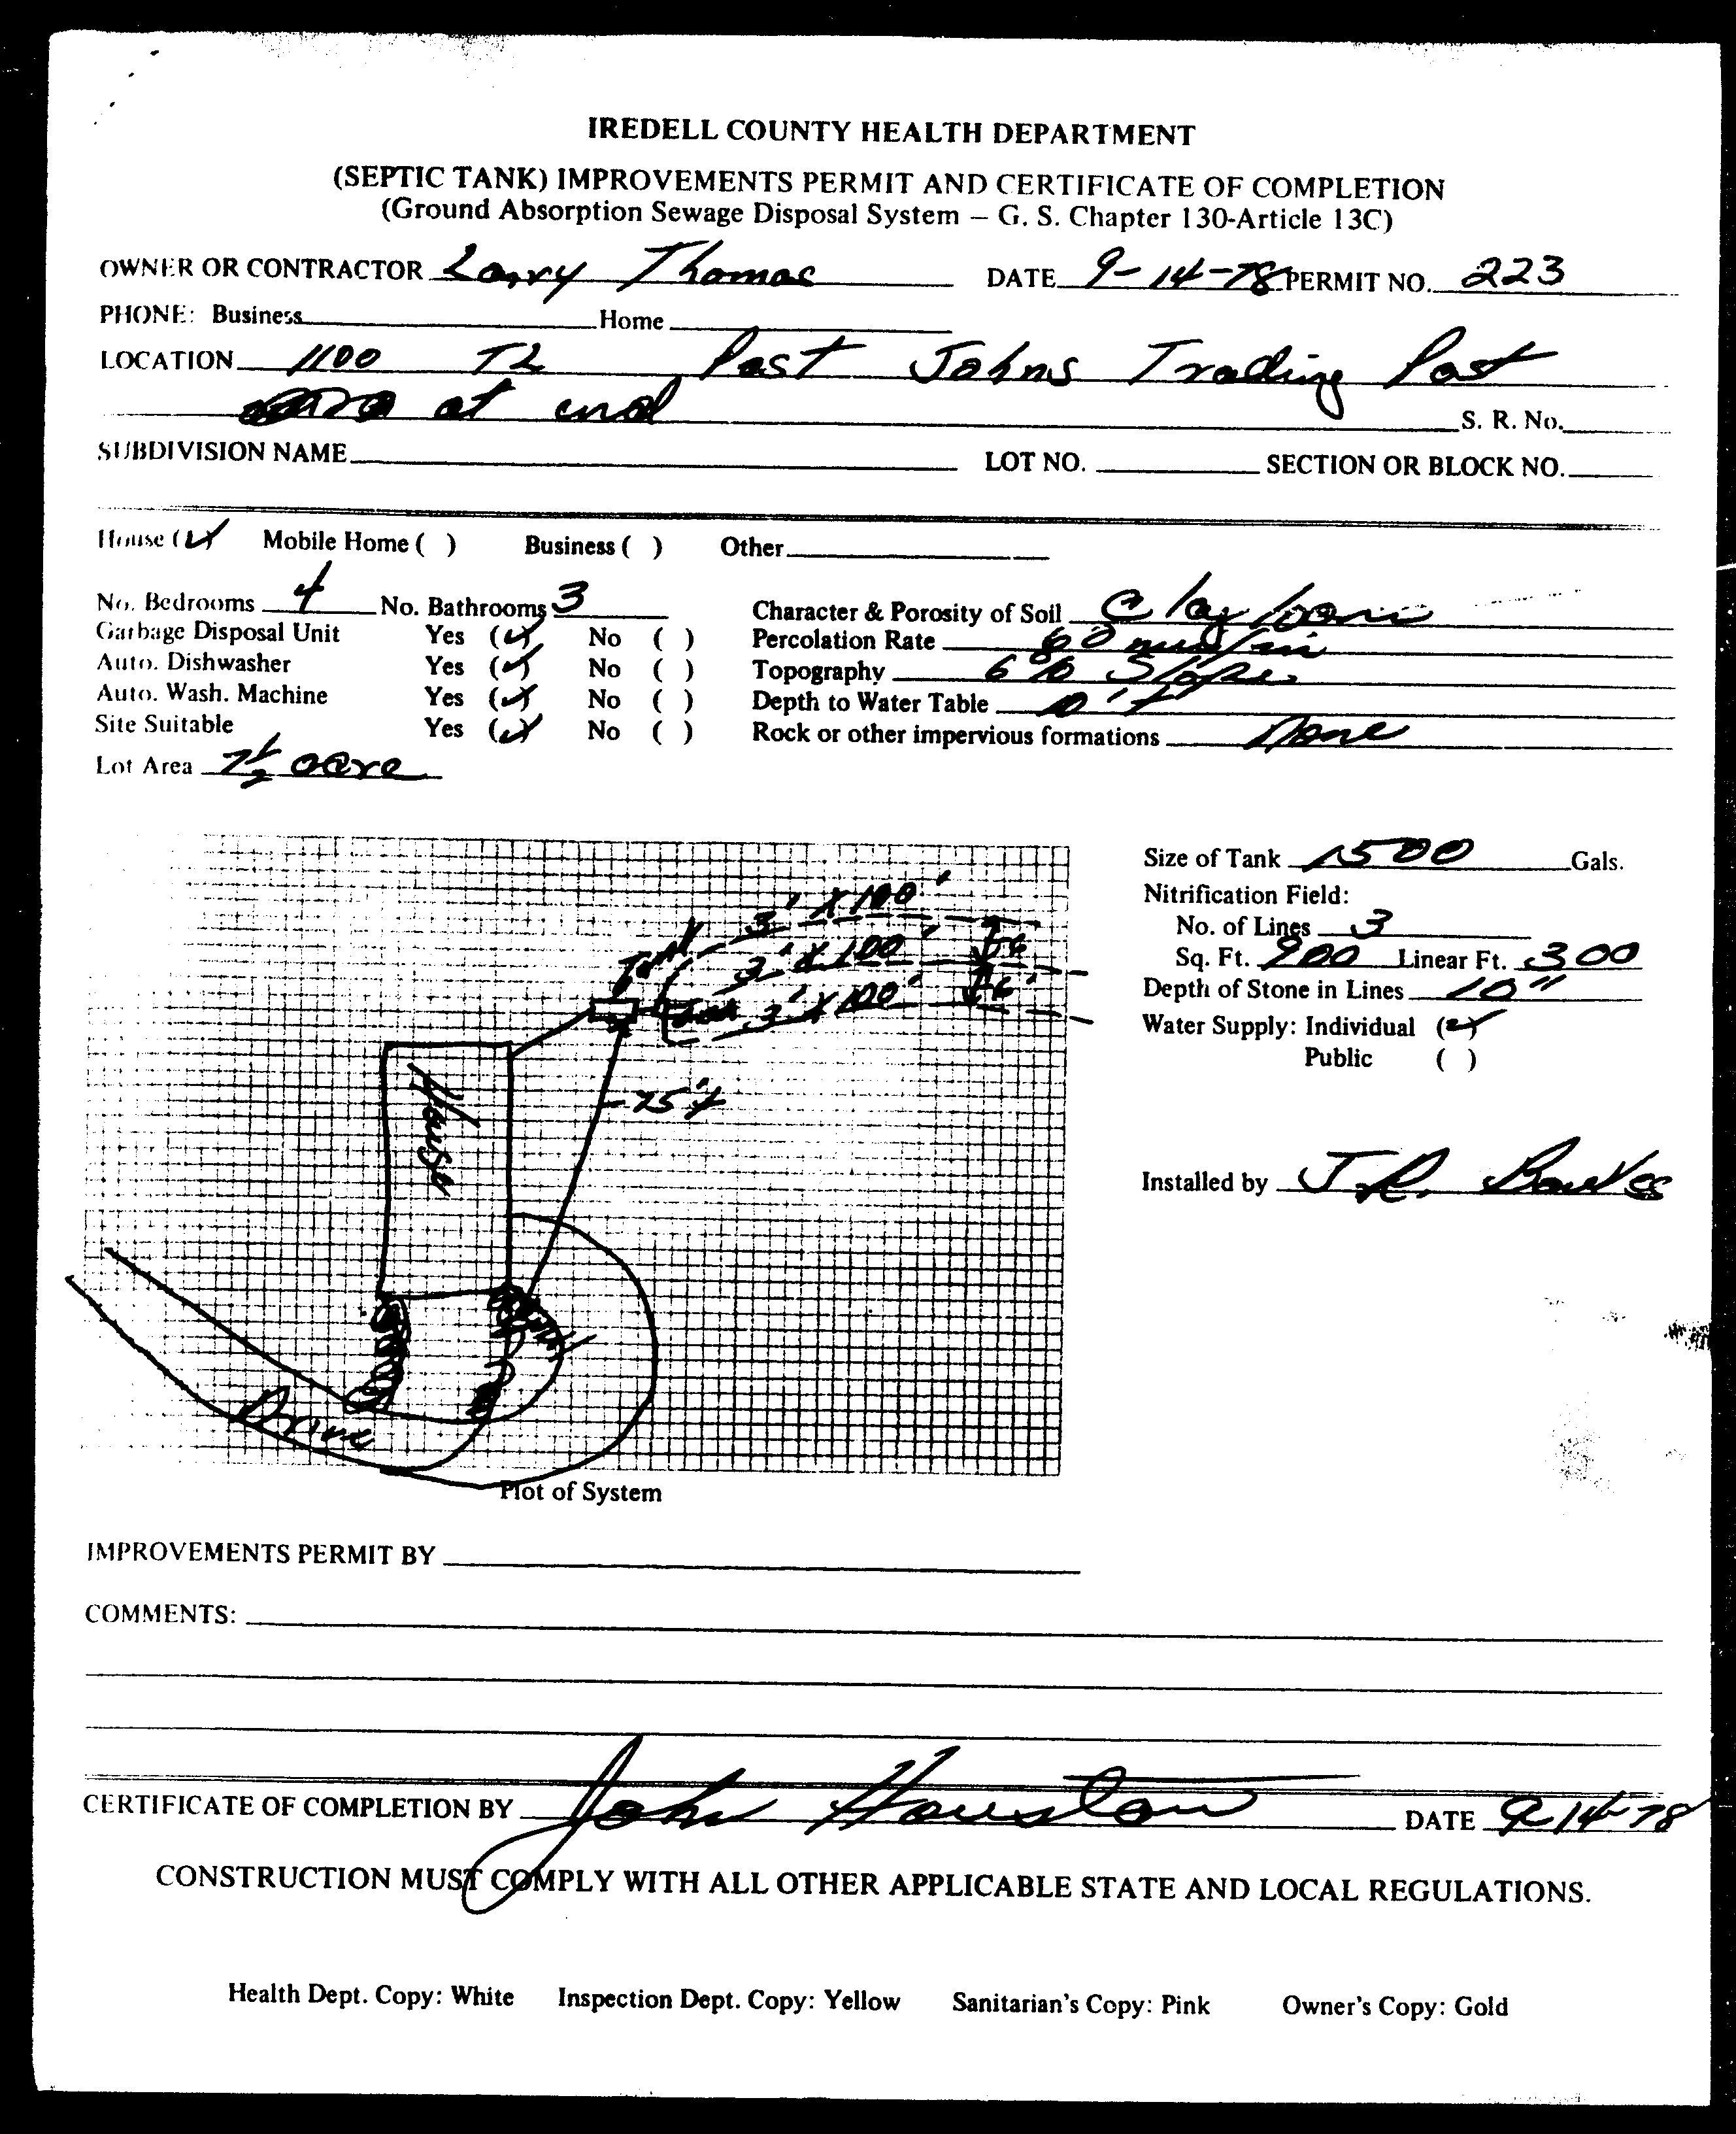 IREDELL COUNTY HEALTH DEPARTMENT
(SEPTIC TANK) IMPROVEMENTS PERMIT AND CERTIFICATE OF COMPLETION
(Ground Absorption Sewage Disposal System – G. S. Chapter 130-Article 13C)
OWNER OR CONTRACTOR Larry Thomas DATE 9-14-78 PERMIT NO. 223
PHONE: Business Home
LOCATION 1100 TL Past Johns Trading Post
at end S. R. No.
SUBDIVISION NAME LOT NO. SECTION OR BLOCK NO.
House (✓) Mobile Home ( ) Business ( ) Other
No. Bedrooms 4 No. Bathrooms 3 Character & Porosity of Soil Clay loam
Garbage Disposal Unit Yes (✓) No ( ) Percolation Rate 60 min/in
Auto. Dishwasher Yes (✓) No ( ) Topography 6% Slope
Auto. Wash. Machine Yes (✓) No ( ) Depth to Water Table
Site Suitable Yes (✓) No ( ) Rock or other impervious formations None
Lot Area 7½ acre
Size of Tank 1500 Gals.
Nitrification Field:
No. of Lines 3
Sq. Ft. 900 Linear Ft. 300
Depth of Stone in Lines 10"
Water Supply: Individual (✓)
Public ( )
Installed by J.R.
3' X 100'
Tank 3' X 100' 6'
3' X 100' 6'
House
75'±
Drive
Plot of System
IMPROVEMENTS PERMIT BY
COMMENTS:
CERTIFICATE OF COMPLETION BY John Houston DATE 9-14-78
CONSTRUCTION MUST COMPLY WITH ALL OTHER APPLICABLE STATE AND LOCAL REGULATIONS.
Health Dept. Copy: White Inspection Dept. Copy: Yellow Sanitarian's Copy: Pink Owner's Copy: Gold